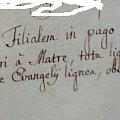 Filialem in pago
ri à Matre, tota lig
e Evangelÿ lignea, obl